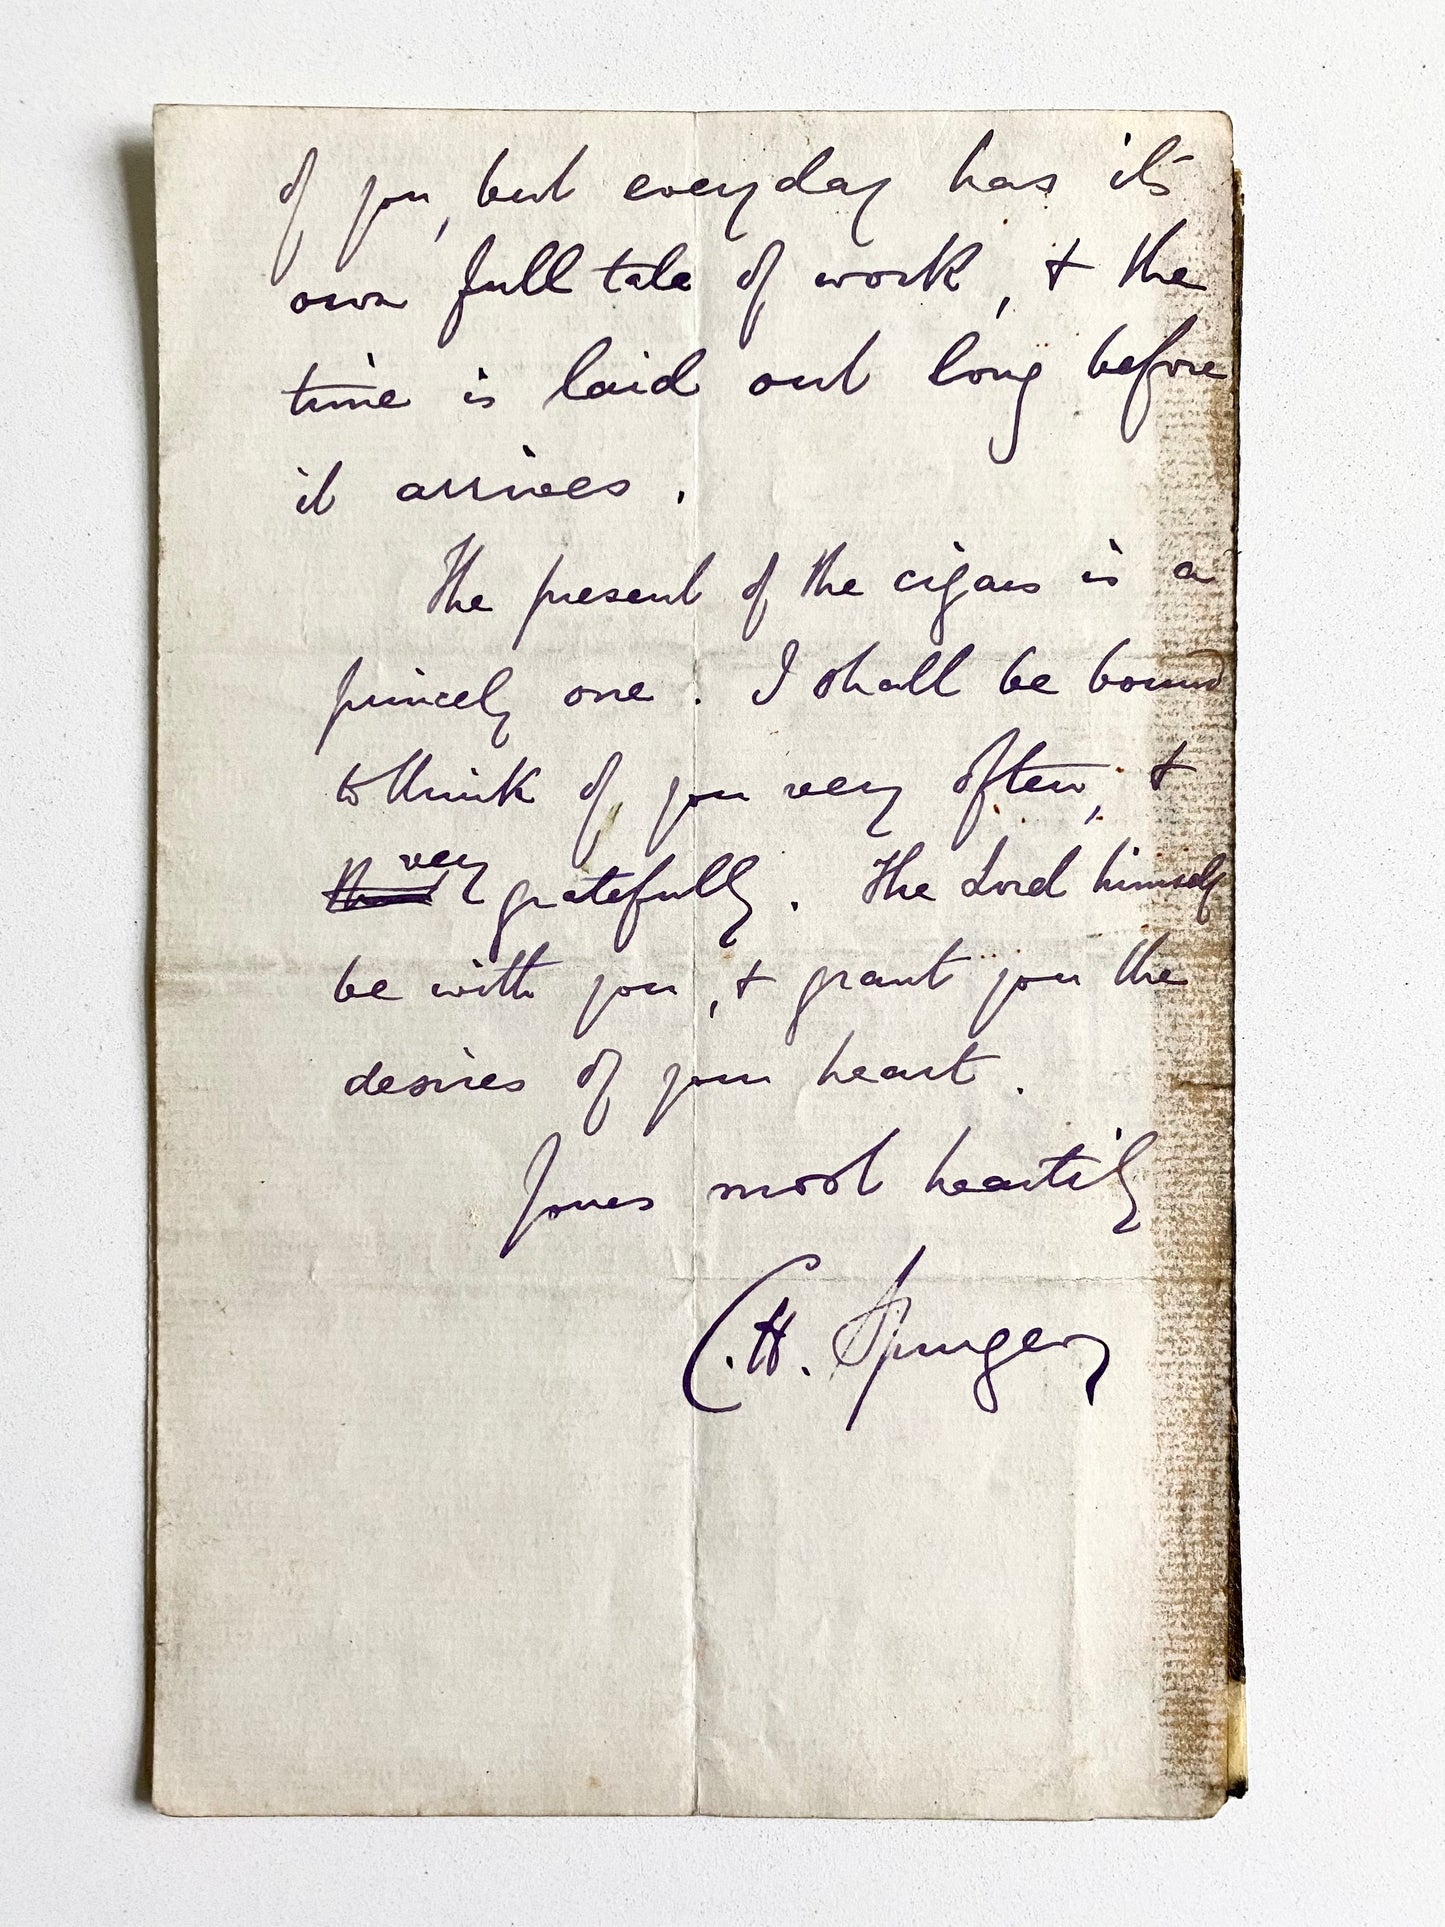 of you, but everyday has its
own full tale of work, & the
time is laid out long before
it arrives.
The present of the cigars is a
princely one. I shall be bound
to think of you very often, &
very
gratefully. The Lord himself
be with you, & grant you the
desires of your heart.
Yours most heartily
C. H. Spurgeon